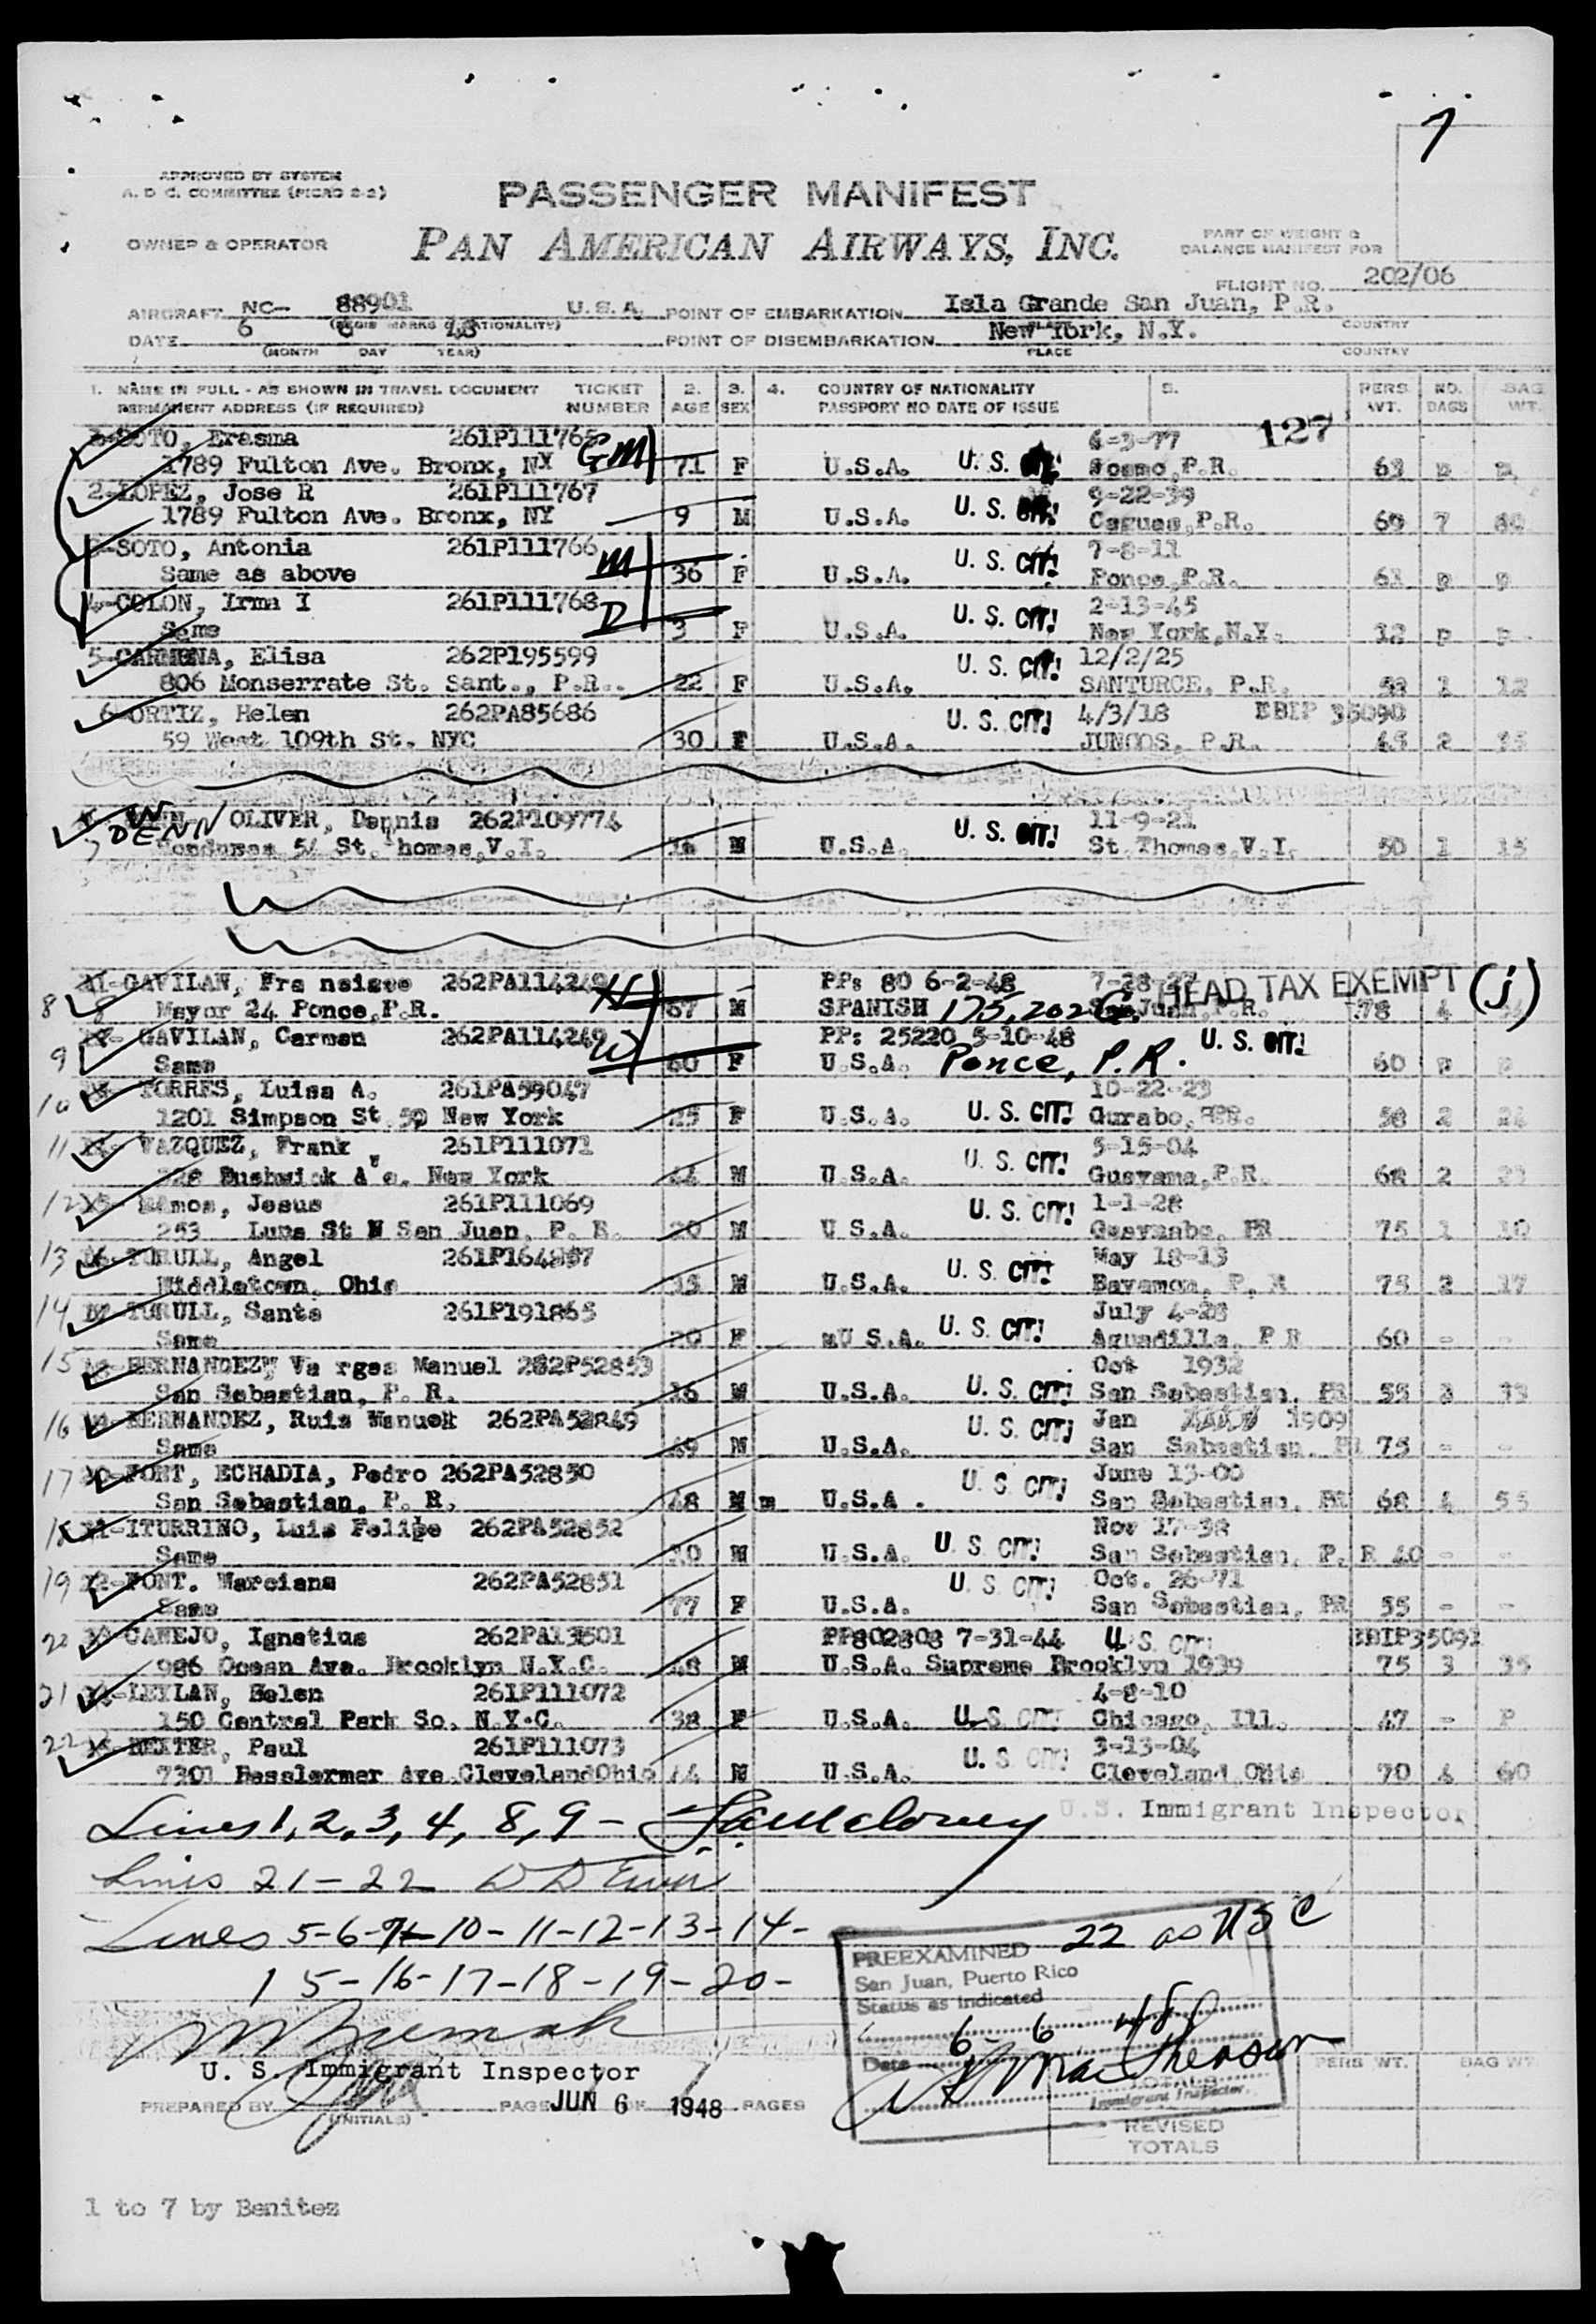 7
APPROVED BY SYSTEM
A. D C. COMMITTEE (MICRO 2-2)
PASSENGER MANIFEST
OWNER & OPERATOR
PAN AMERICAN AIRWAYS, INC.
PART OF WEIGHT &
BALANCE MANIFEST FOR
FLIGHT NO. 202/06
AIRCRAFT NC- 88901 U.S.A. POINT OF EMBARKATION Isla Grande San Juan, P.R.
DATE 6 6 48 POINT OF DISEMBARKATION New York, N.Y.
(MONTH DAY YEAR) PLACE COUNTRY
1. NAME IN FULL - AS SHOWN IN TRAVEL DOCUMENT TICKET 2. 3. 4. COUNTRY OF NATIONALITY 5. PERS NO. BAG
PERMANENT ADDRESS (IF REQUIRED) NUMBER AGE SEX PASSPORT NO DATE OF ISSUE WT. BAGS WT.
SOTO, Erasma 261P111765 -3-77 127
1789 Fulton Ave. Bronx, NY GM 71 F U.S.A. U. S. P.R. 63
2-LOPEZ, Jose R 261P111767 9-22-39
1789 Fulton Ave. Bronx, NY 9 M U.S.A. U. S. Caguas, P.R. 69 7 80
SOTO, Antonia 261P111766 7-8-11
Same as above M 36 F U.S.A. U. S. CIT! Ponce, P.R. 63 p p
4-COLON, Irma I 261P111768 2-13-45
Same D 3 F U.S.A. U. S. CIT! New York, N.Y. 12 p p
5-CARMONA, Elisa 262P195599 12/2/25
806 Monserrate St. Sant., P.R.. 22 F U.S.A. U. S. CIT! SANTURCE, P.R. 1 12
6-ORTIZ, Helen 262PA85686 4/3/18 EBIP 35090
59 West 109th St. NYC 30 F U.S.A. U. S. CIT! JUNCOS, P.R. 2 35
7 DENN OLIVER, Dennis 262P109774 11-9-21
Honduras 5 St. Thomas, V.I. M U.S.A. U. S. CIT! St. Thomas, V.I. 50 1 15
8 GAVILAN, Fra ncisco 262PA114249 H PP: 80 6-2-48 7-28- HEAD TAX EXEMPT (j)
Mayor 24 Ponce, P.R. 67 M SPANISH 175,202 San Juan, P.R. 78 4
9 GAVILAN, Carmen 262PA114249 W PP: 25220 5-10-48 U. S. CIT!
Same 60 F U.S.A. Ponce, P.R. 60 p p
10 TORRES, Luisa A. 261PA59047 10-22-23
1201 Simpson St. 5D New York 25 F U.S.A. U. S. CIT! Gurabo, 58 2 24
11 VAZQUEZ, Frank 261P111071 5-15-04
Bushwick Ave. New York 44 M U.S.A. U. S. CIT! Guayama, P.R. 68 2
12 Ramos, Jesus 261P111069 1-1-28
253 Luna St N San Juan, P. R. 20 M U S.A. U. S. CIT! Guaynabo, PR 75 1 10
13 TORULL, Angel May 18-13
Middletown, Ohio 35 M U.S.A. U. S. CIT! Bayamon, P. R 75 2 17
14 TORULL, Santa 261P191865 July 4-28
Same 20 F U S.A. U. S. CIT! Aguadilla, P R 60 - -
15 HERNANDEZ, Va rgas Manuel 262P52853 Oct 1932
San Sebastian, P. R. 16 M U.S.A. U. S. CIT! San Sebastian, PR 55 3 33
16 HERNANDEZ, Ruis Manuel 262PA52849 Jan 1909
Same 39 M U.S.A. U. S. CIT! San Sebastian, PR 75 - -
17 FONT, ECHADIA, Pedro 262PA52850 June 13-00
San Sebastian, P. R. 48 M m U.S.A . U. S. CIT! San Sebastian, PR 68 4 55
18 ITURRINO, Luis Felipe 262PA52852 Nov 17-38
Same 10 M U.S.A. U. S. CIT! San Sebastian, P. R 40 - -
19 FONT. Marciana 262PA52851 Oct. 26-71
Same 77 F U.S.A. U. S. CIT! San Sebastian, PR 55 - -
CAMEJO, Ignatius 262PA13501 PP802808 7-31-44 U. S. CIT! EBIP35091
986 Ocean Ave. Brooklyn N.Y.C. 48 M U.S.A. Supreme Brooklyn 1939 75 3 35
21 LEYLAN, Helen 261P111072 4-8-10
150 Central Park So. N.Y.C. 38 F U.S.A. U. S. CIT! Chicago, Ill. 47 - P
22 DEXTER, Paul 261P111073 3-13-04
7301 Ave. Cleveland Ohio 44 M U.S.A. U. S CIT! Cleveland, Ohio 70 4 60
Lines 1, 2, 3, 4, 8, 9 -
U.S. Immigrant Inspector
Lines 21-22
Lines 5-6-7-10-11-12-13-14-
15-16-17-18-19-20-
PREEXAMINED 22 as USC
San Juan, Puerto Rico
Status as indicated
Date 6 6 48
Immigrant Inspector
U. S. Immigrant Inspector
PREPARED BY (INITIALS) PAGE JUN 6 1948 PAGES
PERS WT. BAG WT
TOTALS
REVISED
TOTALS
1 to 7 by Benitez